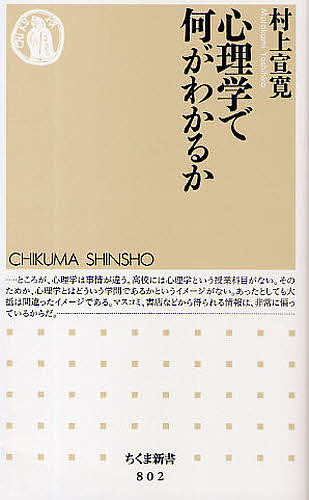 村上宣寛
Murakami Yoshihiro
心理学で
何がわかるか
CHIKUMA SHINSHO
……ところが、心理学は事情が違う。高校には心理学という授業科目がない。そ
のためか、心理学とはどういう学問であるかというイメージがない。あったとしても大
抵は間違ったイメージである。マスコミ、書店などから得られる情報は、非常に偏っ
ているからだ。……
ちくま新書
802